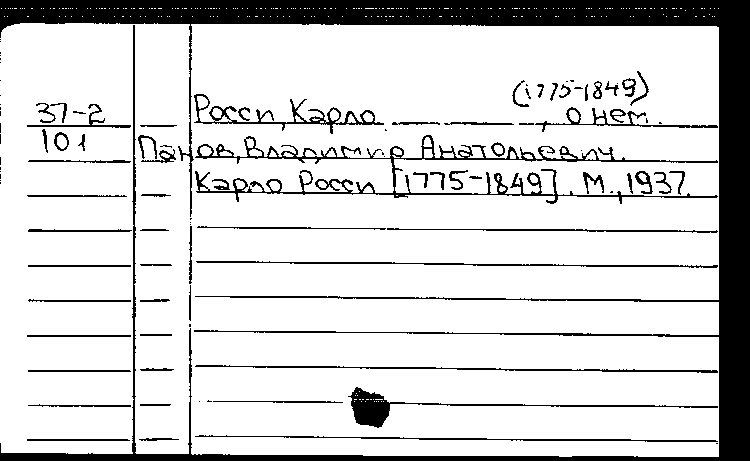 (1775-1849)
37-2 Росси, Карло , о нем.
101 Панов, Владимир Анатольевич.
Карло Росси [1775-1849]. М., 1937.